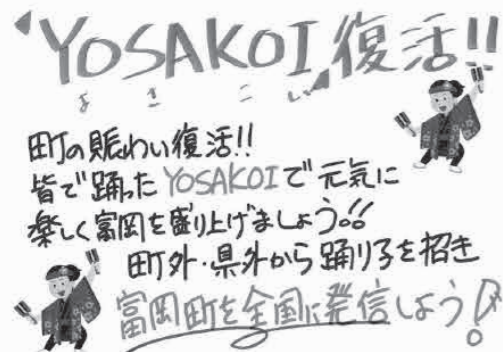 "YOSAKOI"復活!!
よさこい
町の賑わい復活!!
皆で踊ったYOSAKOIで元気に
楽しく富岡を盛り上げましょう!!
町外・県外から踊り子を招き
富岡町を全国に発信しよう!